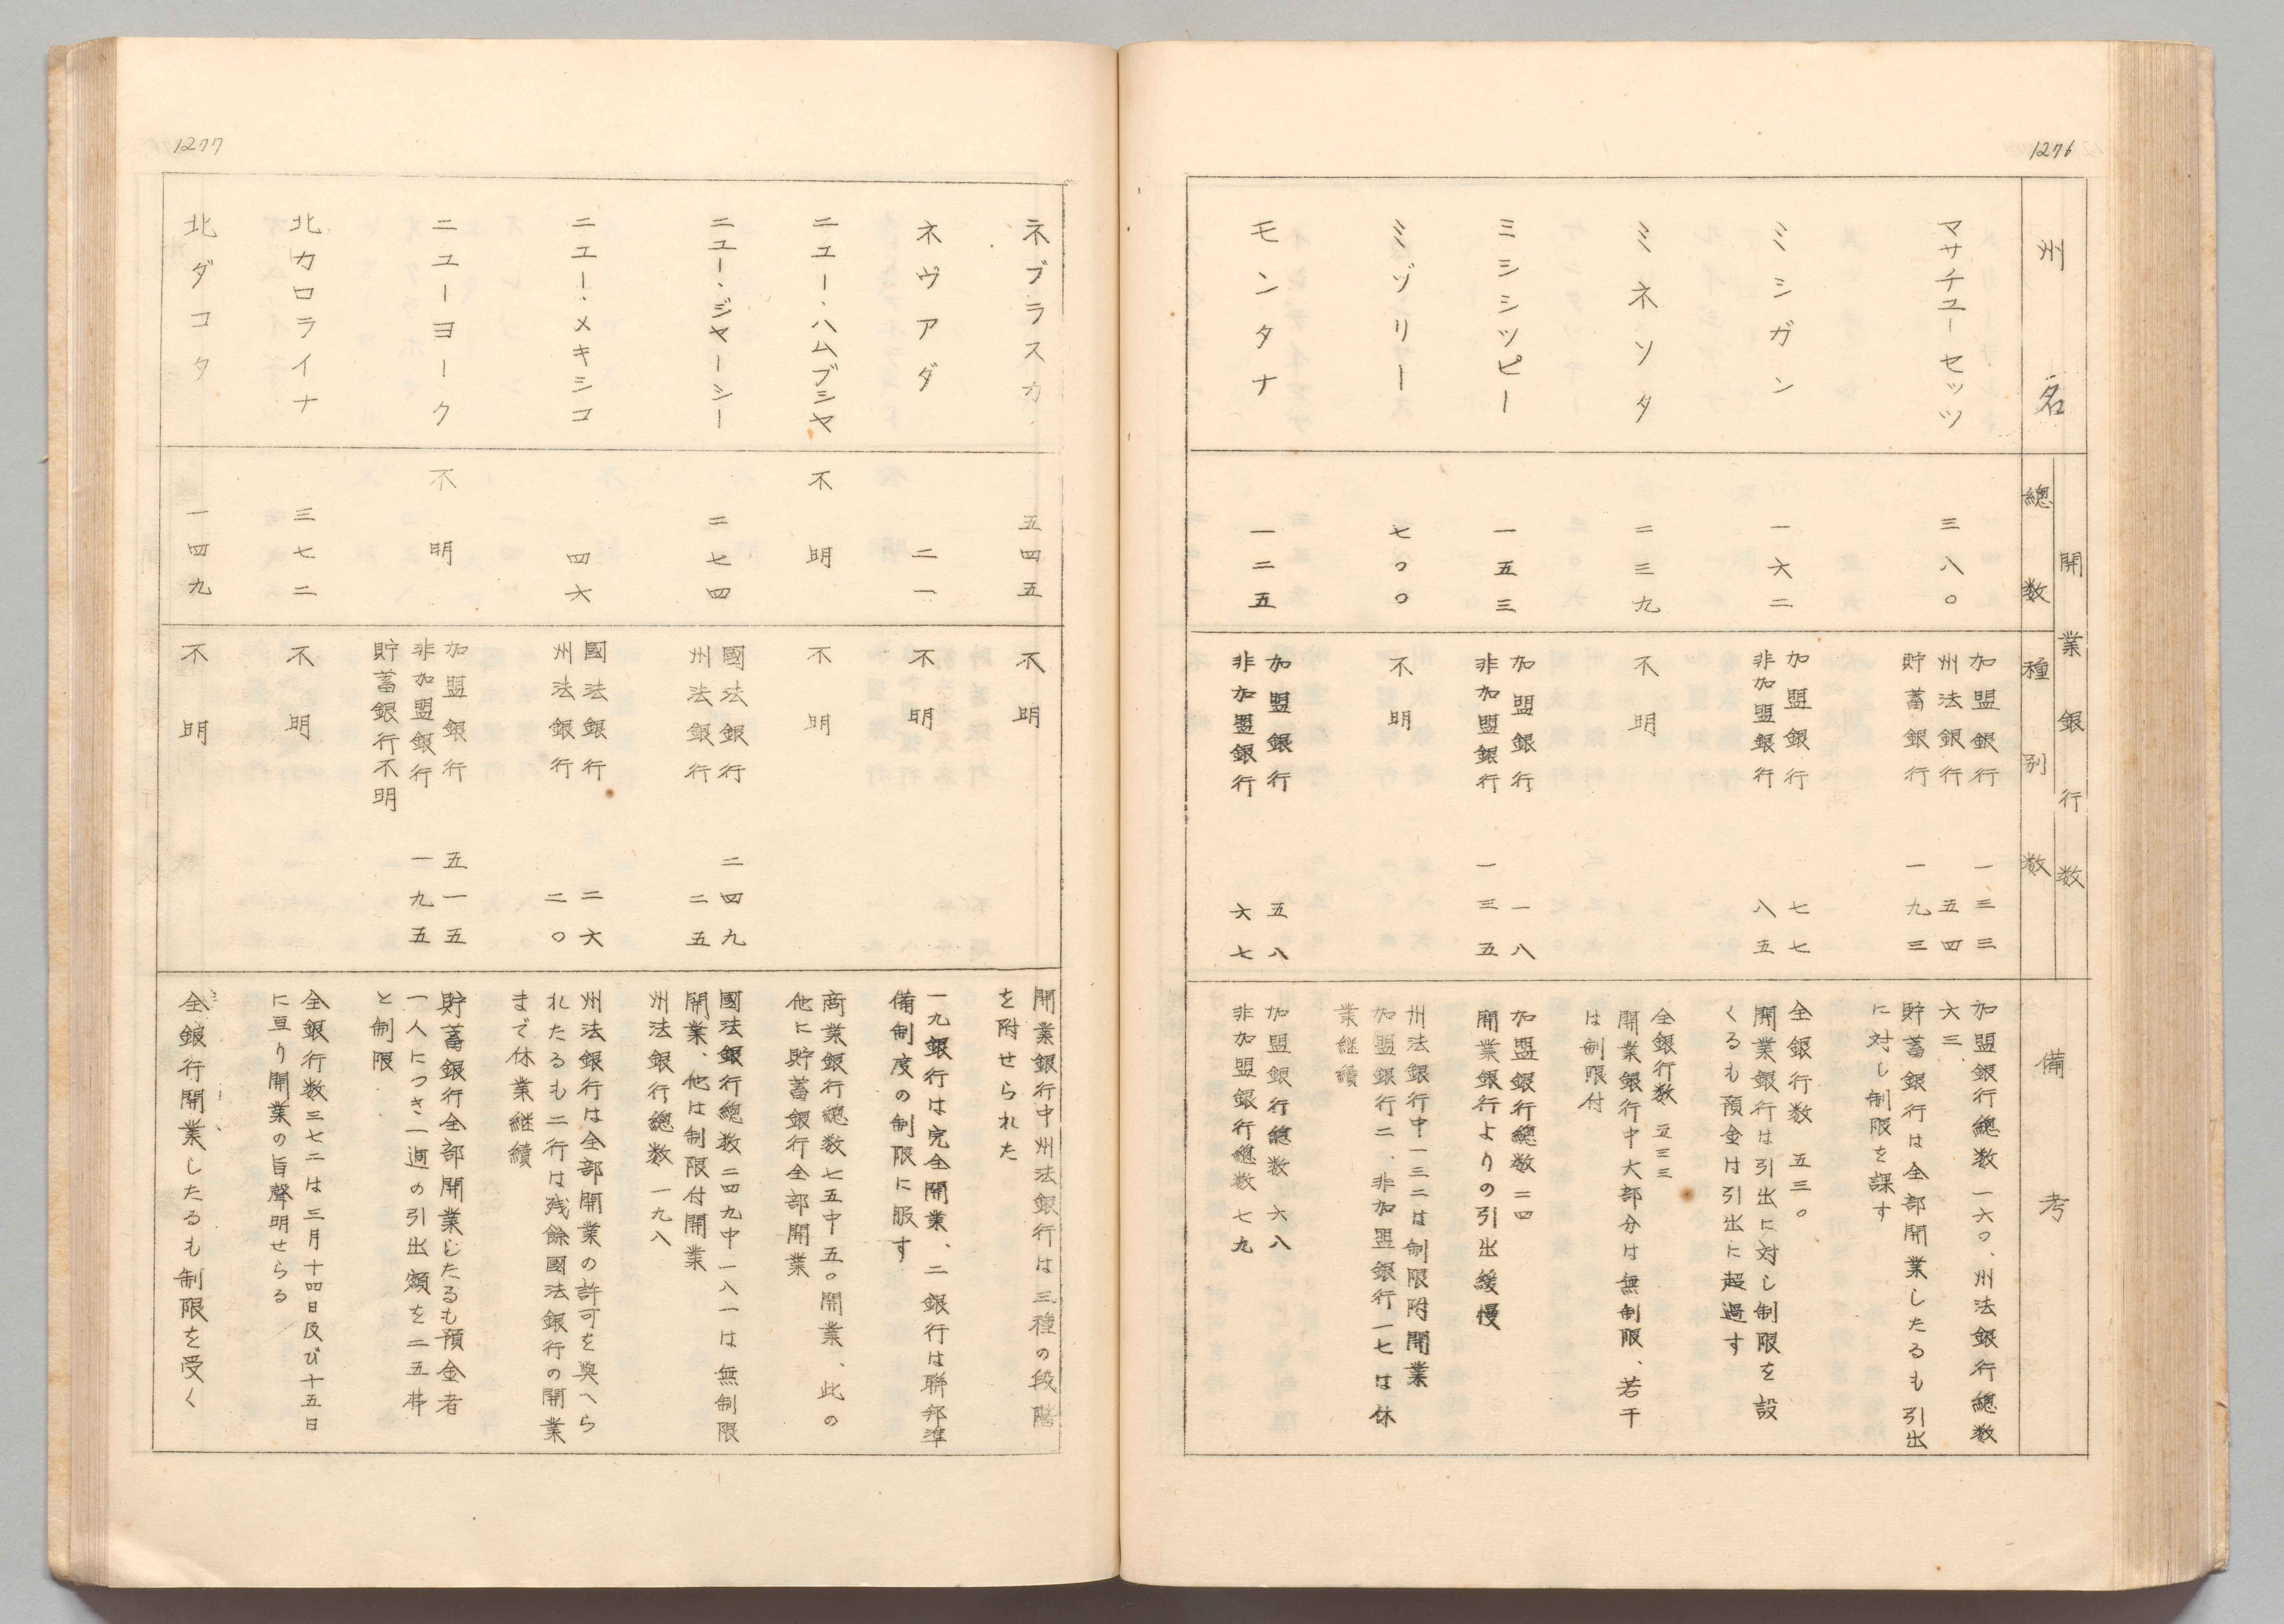 1276
州名
開業銀行数
總数
種別数
備考
マサチユーセッツ
三八〇
加盟銀行 一三三
州法銀行 五四
貯蓄銀行 一九三
加盟銀行總数一六〇、州法銀行總数
六三
貯蓄銀行は全部開業したるも引出
に対し制限を課す
ミシガン
一六二
加盟銀行 七七
非加盟銀行 八五
全銀行数 五三〇
開業銀行は引出に対し制限を設
くるも預金は引出に超過す
ミネソタ
二三九
不明
全銀行数 五三三
開業銀行中大部分は無制限、若干
は制限付
ミシシツピー
一五三
加盟銀行 一八
非加盟銀行 一三五
加盟銀行總数二四
開業銀行よりの引出緩慢
ミゾリー
七〇〇
不明
州法銀行中一三二は制限附開業
加盟銀行二、非加盟銀行一七は休
業継續
モンタナ
一二五
加盟銀行 五八
非加盟銀行 六七
加盟銀行總数 六八
非加盟銀行總数 七九
1277
ネブラスカ
五四五
不明
開業銀行中州法銀行は三種の段階
を附せられた
ネヴアダ
二一
不明
一九銀行は完全開業、二銀行は聯邦準
備制度の制限に服す
ニユー・ハムプシヤ
不明
不明
商業銀行總数七五中五〇開業、此の
他に貯蓄銀行全部開業
ニユー・ジヤーシー
二七四
國法銀行 二四九
州法銀行 二五
國法銀行總数二四九中一八一は無制限
開業、他は制限付開業
州法銀行總数 一九八
ニユー・メキシコ
四六
國法銀行 二六
州法銀行 二〇
州法銀行は全部開業の許可を與へら
れたるも二行は残餘國法銀行の開業
まで休業継續
ニユーヨーク
不明
加盟銀行 五一五
非加盟銀行 一九五
貯蓄銀行不明
貯蓄銀行全部開業したるも預金者
一人につき一週の引出額を二五弗
と制限
北カロライナ
三七二
不明
全銀行数三七二は三月十四日及び十五日
に亘り開業の旨聲明せらる
北ダコタ
一四九
不明
全銀行開業したるも制限を受く